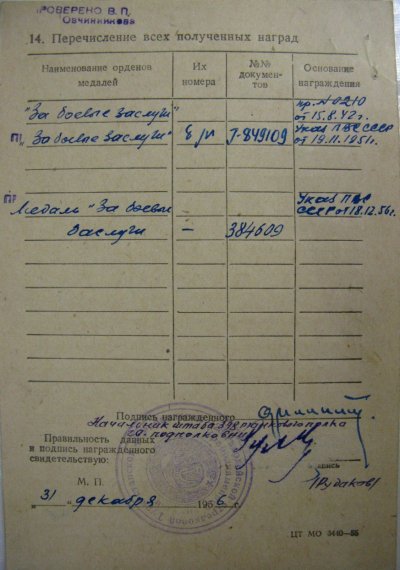 ПРОВЕРЕНО В. П.
Овчинникова
14. Перечисление всех полученных наград
Наименование орденов медалей
Их номера
№№ документов
Основание награждения
"За боевые заслуги"
пр. № 0210
от 15.8.42 г.
"За боевые заслуги"
б/н
Г-849109
Указ ПВС СССР
от 19.11.1951г.
Медаль "За боевые
Указ ПВС
СССР от 18.12.56г.
заслуги
–
384609
Подпись награжденного
Начальник штаба танкового полка
гв. подполковник
Правильность данных
и подпись награжденного
свидетельствую:
подпись
/Рудаков/
М. П.
"31" декабря 1956 г.
ЦТ МО 3440—55